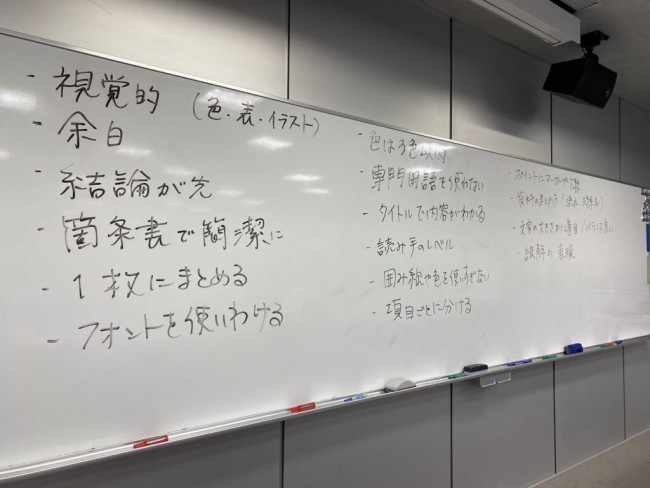 - 視覚的 (色・表・イラスト)
- 余白
- 結論が先
- 箇条書で簡潔に
- 1枚にまとめる
- フォントを使いわける
- 色は3色以内
- 専門用語を使わない
- タイトルで内容がわかる
- 読み手のレベル
- 囲み線や色を使いすぎない
- 項目ごとに分ける
- ポイントにマーカーや下線
- 資料のまとめ方
- 文字の大きさ
- 誤解の